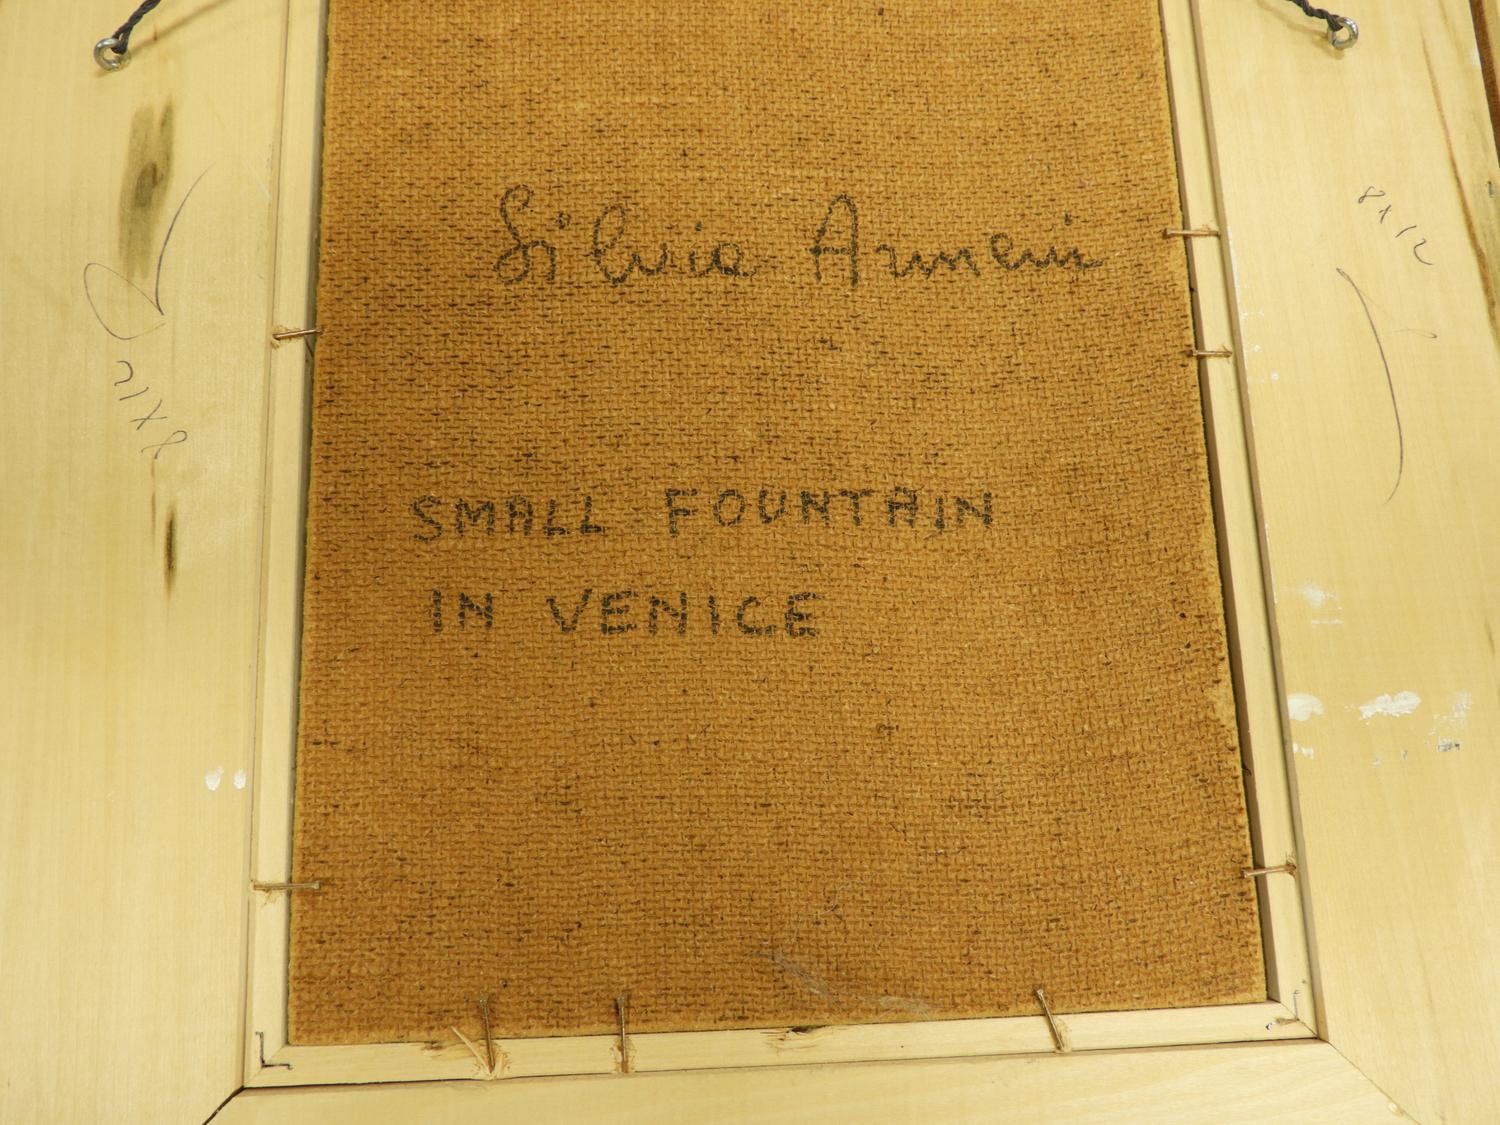 Silvia Armeni
SMALL FOUNTAIN
IN VENICE
8x12
8x12